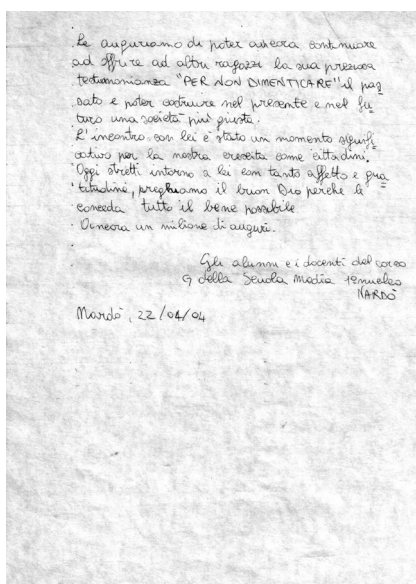 Le auguriamo di poter ancora continuare
ad offrire ad altri ragazzi la sua preziosa
testimonianza "PER NON DIMENTICARE" il pas
sato e poter costruire nel presente e nel fu
turo una società più giusta.
L'incontro con lei è stato un momento signifi
cativo per la nostra crescita come cittadini.
Oggi stretti intorno a lei con tanto affetto e gra
titudine, preghiamo il buon Dio perché le
conceda tutto il bene possibile
Ancora un milione di auguri.
Gli alunni e i docenti del corso
G della Scuola Media 1° nucleo
NARDÒ
Nardò, 22/04/04